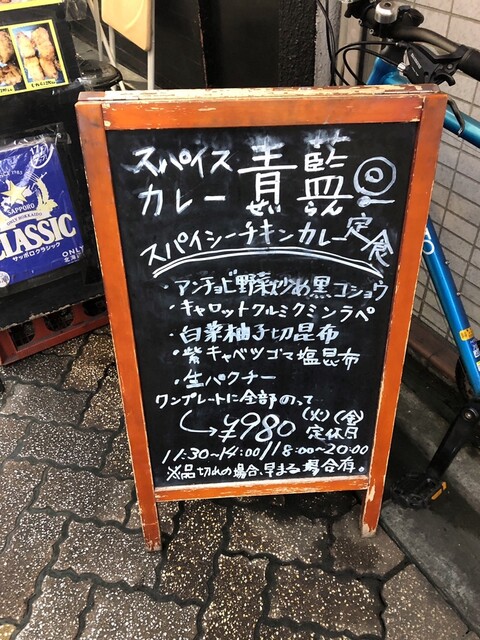 スパイス
カレー
青藍
せいらん
スパイシーチキンカレー定食
・アンチョビ野菜炒め黒コショウ
・キャロットクルミクミンラペ
・白菜柚子切昆布
・紫キャベツゴマ塩昆布
・生パクチー
ワンプレートに全部のって…
¥980
(火)(金)
定休日
11:30~14:00/18:00~20:00
※品切れの場合、早まる場合有。
SAPPORO
CLASSIC
サッポロクラシック
ONLY
北海道